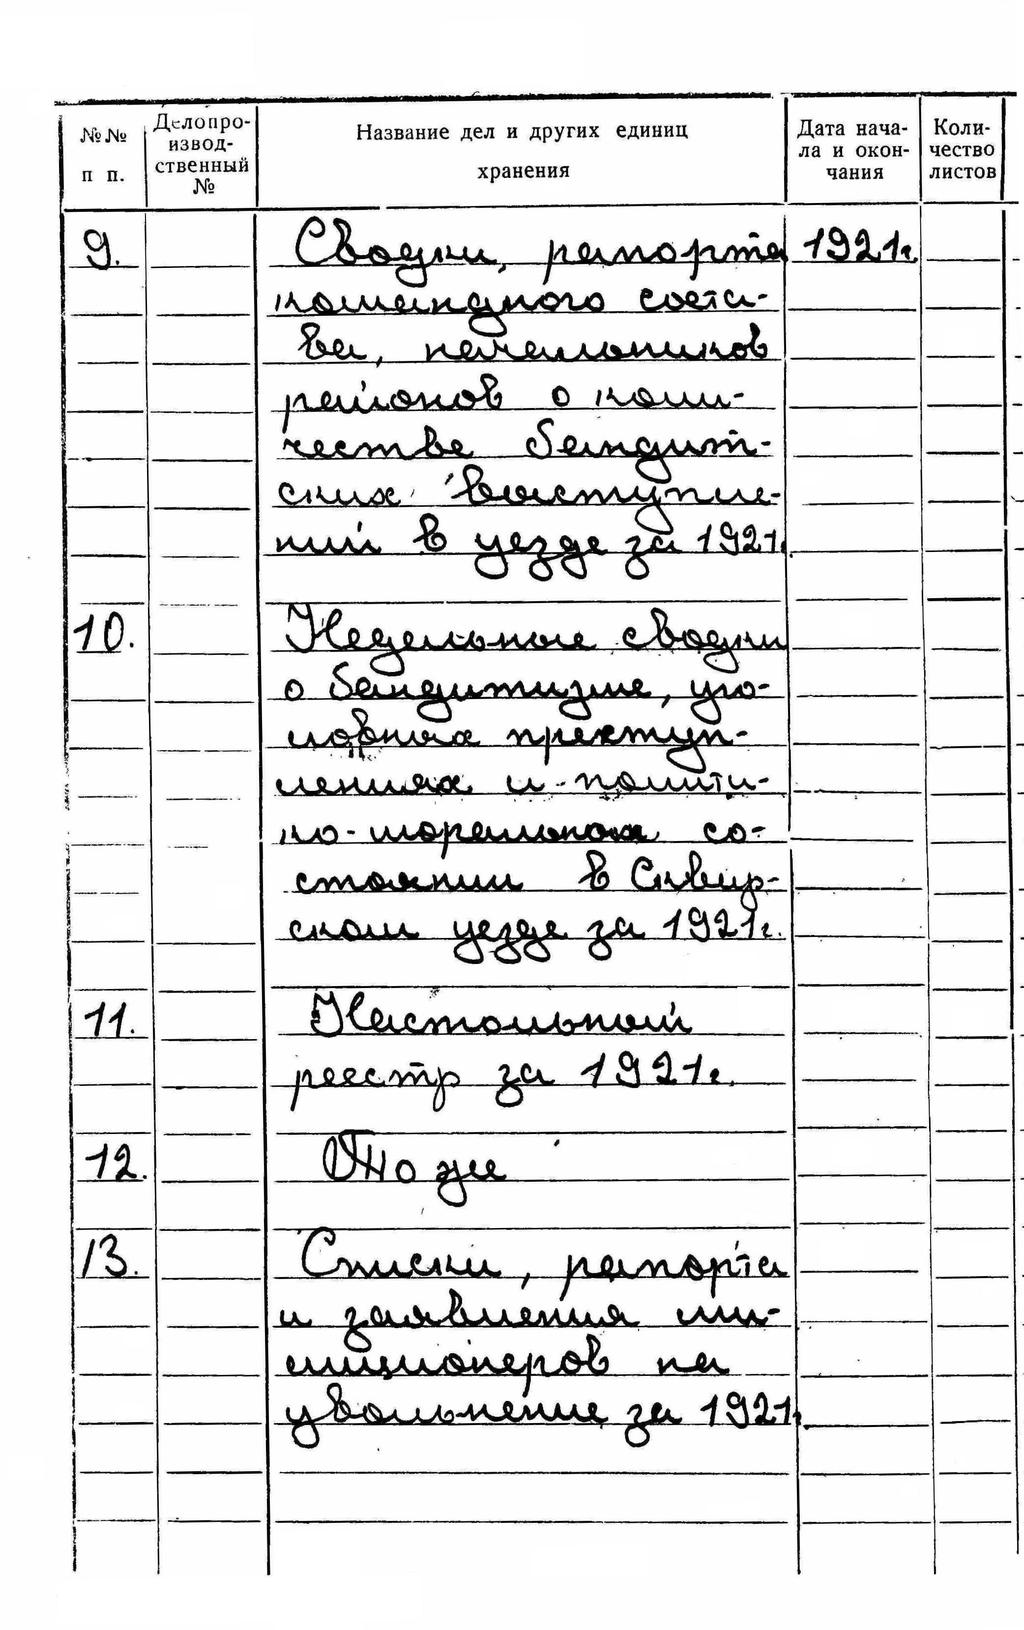 №№ п п. Делопроизводственный № Название дел и других единиц хранения Дата начала и окончания Количество листов
9. Сводки, рапорта 1921г.
командного соста-
ва, начальников
районов о коли-
честве бандит-
ских выступле-
ний в уезде за 1921г.
10. Недельные сводки
о бандитизме, уго-
ловных преступ-
лениях и полити-
ко-моральном со-
стоянии в Сквир-
ском уезде за 1921г.
11. Настольный
реестр за 1921г.
12. То же
13. Списки, рапорта
и заявления ми-
лиционеров на
увольнение за 1921г.